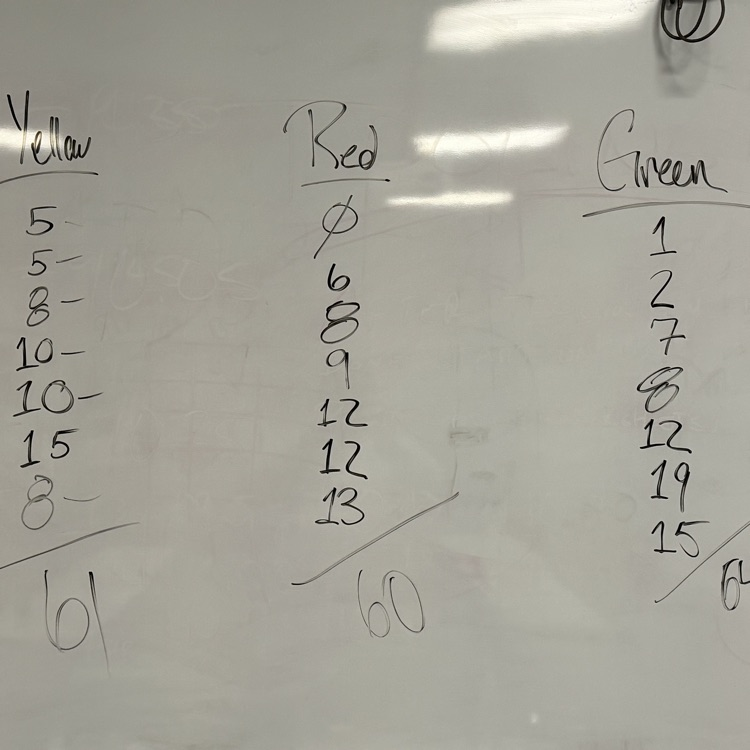 Yellow
5-
5-
8-
10-
10-
15
8-
61
Red
Ø
6
8
9
12
12
13
60
Green
1
2
7
8
12
19
15
64